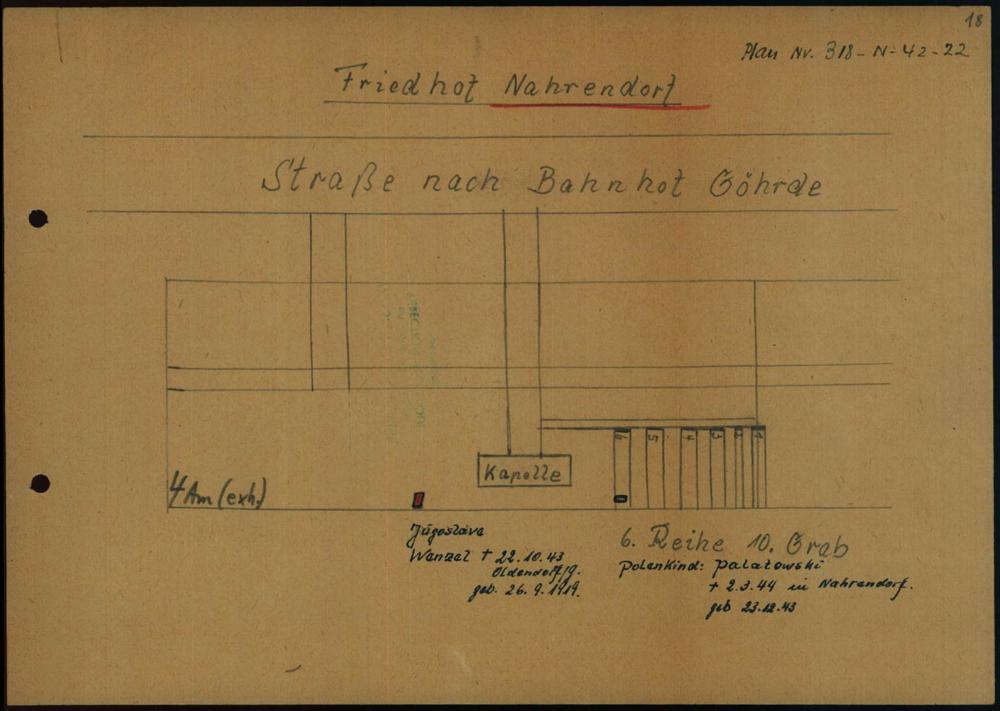 18
Plan Nr. 318-N-42-22
Friedhof Nahrendorf
Straße nach Bahnhof Göhrde
6 5 4 3 2 1
Kapelle
4 Am (exh.)
Jugoslave
Wenzel + 22.10.43
Oldendorf/g.
geb. 26.9.1919.
6. Reihe 10. Grab
Polenkind: Palatowski
+ 2.3.44 in Nahrendorf.
geb 23.12.43